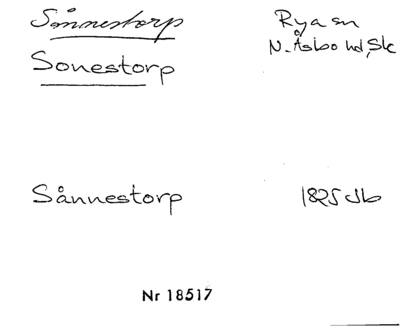 Sånnestorp Rya sn
Sonestorp N. Åsbo hd, Sk
Sånnestorp 1825 Jb
Nr 18517